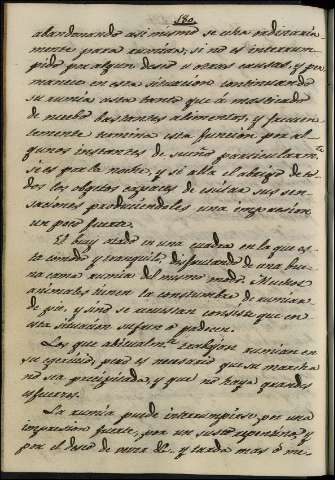 180.
abandonando asi mismo se echa ordinaria
mente para rumiar; si no es interrum
pido por algun deseo u otras causas, y per
manece en esta situación continuando
su rumia hasta tanto que á masticado
de nuebo bastantes alimentos, y frecuen
temente termina esta función por al
gunos instantes de sueño particularm.te
si es por la noche, y si alla el abrigo de to
dos los objetos capaces de exitar sus sen
saciones produciendoles una impresion
un poco fuerte.
El buey atado en una cuadra en la que es
ta comodo y tranquilo disfrutando de una bue
na cama rumia del mismo modo. Muchos
animales tienen la constumbre de rumiar
de pie, y si no se acuestan consiste que en
esta situacion sufren o padecen.
Los que abitualm.te trabajan rumian en
su egercicio; pero es necesario que su marcha
no sea precipitada, y que no haga grandes
esfuerzos.
La rumia puede interrumpirse, por una
impresion fuerte, por un susto repentino, y
por el deseo de comer &c. y tarda mas ó me.